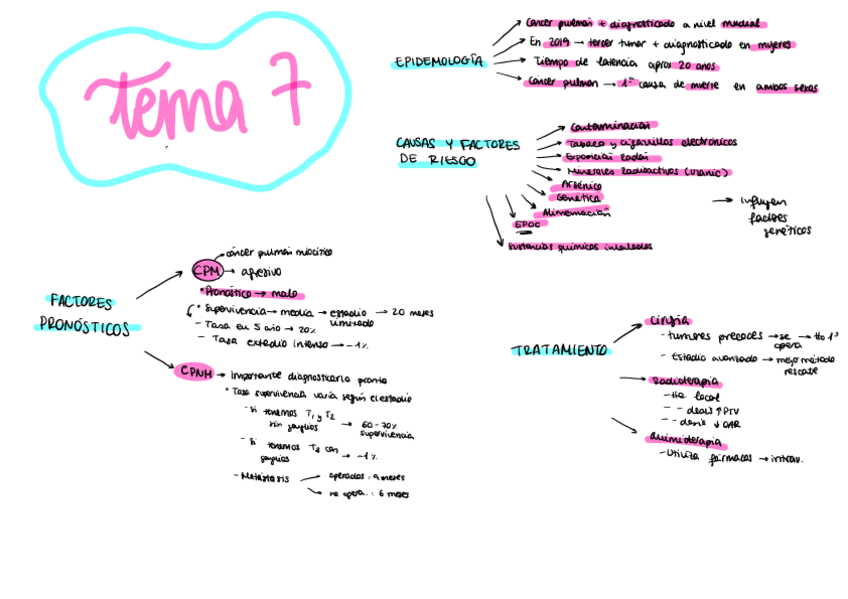 Tema 7
EPIDEMOLOGÍA
Cáncer pulmón + diagnosticado a nivel mundial
En 2019 → tercer tumor + diagnosticado en mujeres
Tiempo de latencia aprox 20 años
Cáncer pulmón → 1ª causa de muerte en ambos sexos
CAUSAS Y FACTORES
DE RIESGO
Contaminación
Tabaco y cigarrillos electrónicos
Exposición Radón
Minerales Radioactivos (Uranio)
Arsénico
Genética
Alimentación
EPOC
Sustancias químicas inhaladas
→ influyen
factores
genéticos
FACTORES
PRONÓSTICOS
CPM
cáncer pulmón microcítico
→ agresivo
* Pronóstico → malo
* Supervivencia → media → estadio → 20 meses
limitado
- Tasa en 5 año → 20%
- Tasa extadio intenso → -1%
CPNM → Importante diagnosticarlo pronto
* Tasa supervivencia varía según el estadio
- Si tenemos T1 y T2
sin ganglios → 60-70%
supervivencia
- Si tenemos con
ganglios → -1%
- Metástasis
operados: 9 meses
no opera.: 6 meses
TRATAMIENTO
Cirugía
- tumores precoces → se → tto 1º
opera
- Estadio avanzado → mejor método
rescate
Radioterapia
- tto local
- - dosis ↑ PTV
- - dosis ↓ OAR
Quimioterapia
- Utiliza fármacos → intrav.